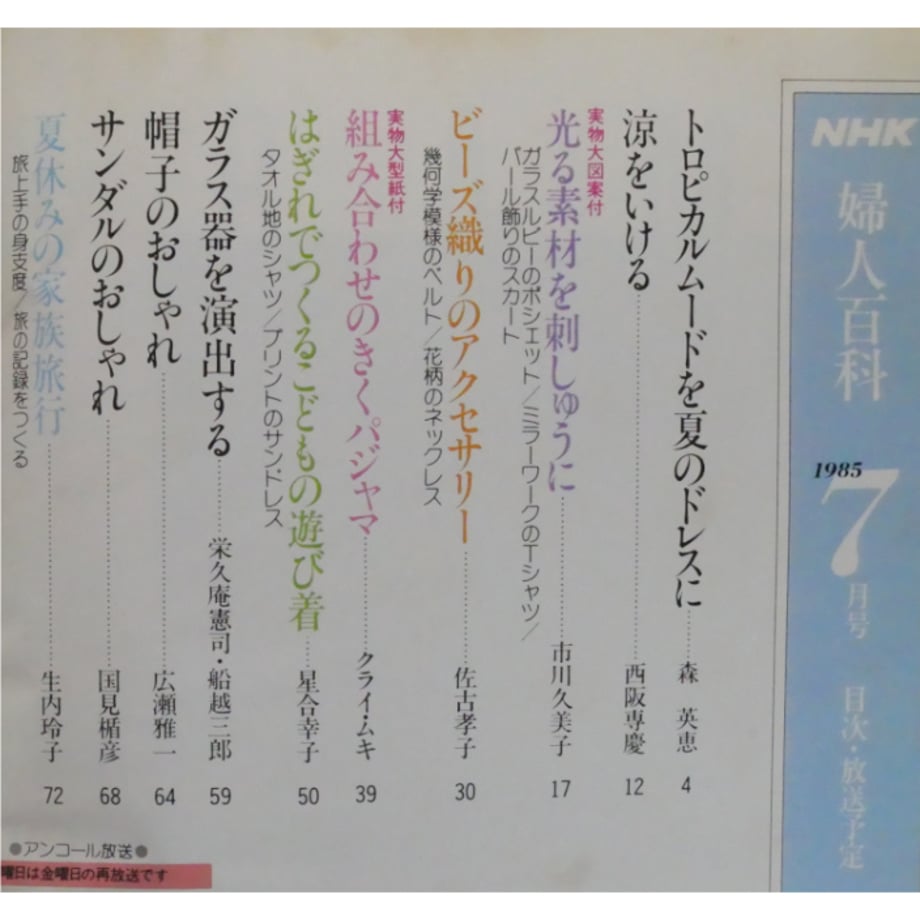 NHK
婦人百科
1985
7月号
目次・放送予定
トロピカルムードを夏のドレスに 森 英恵 4
涼をいける 西阪専慶 12
実物大図案付
光る素材を刺しゅうに 市川久美子 17
ガラスルビーのポシェット/ミラーワークのTシャツ/
パール飾りのスカート
ビーズ織りのアクセサリー 佐古孝子 30
幾何学模様のベルト/花柄のネックレス
実物大型紙付
組み合わせのきくパジャマ クライ・ムキ 39
はぎれでつくるこどもの遊び着 星合幸子 50
タオル地のシャツ/プリントのサンドレス
ガラス器を演出する 栄久庵憲司・船越三郎 59
帽子のおしゃれ 広瀬雅一 64
サンダルのおしゃれ 国見楯彦 68
夏休みの家族旅行 生内玲子 72
旅上手の身支度/旅の記録をつくる
●アンコール放送●
曜日は金曜日の再放送です